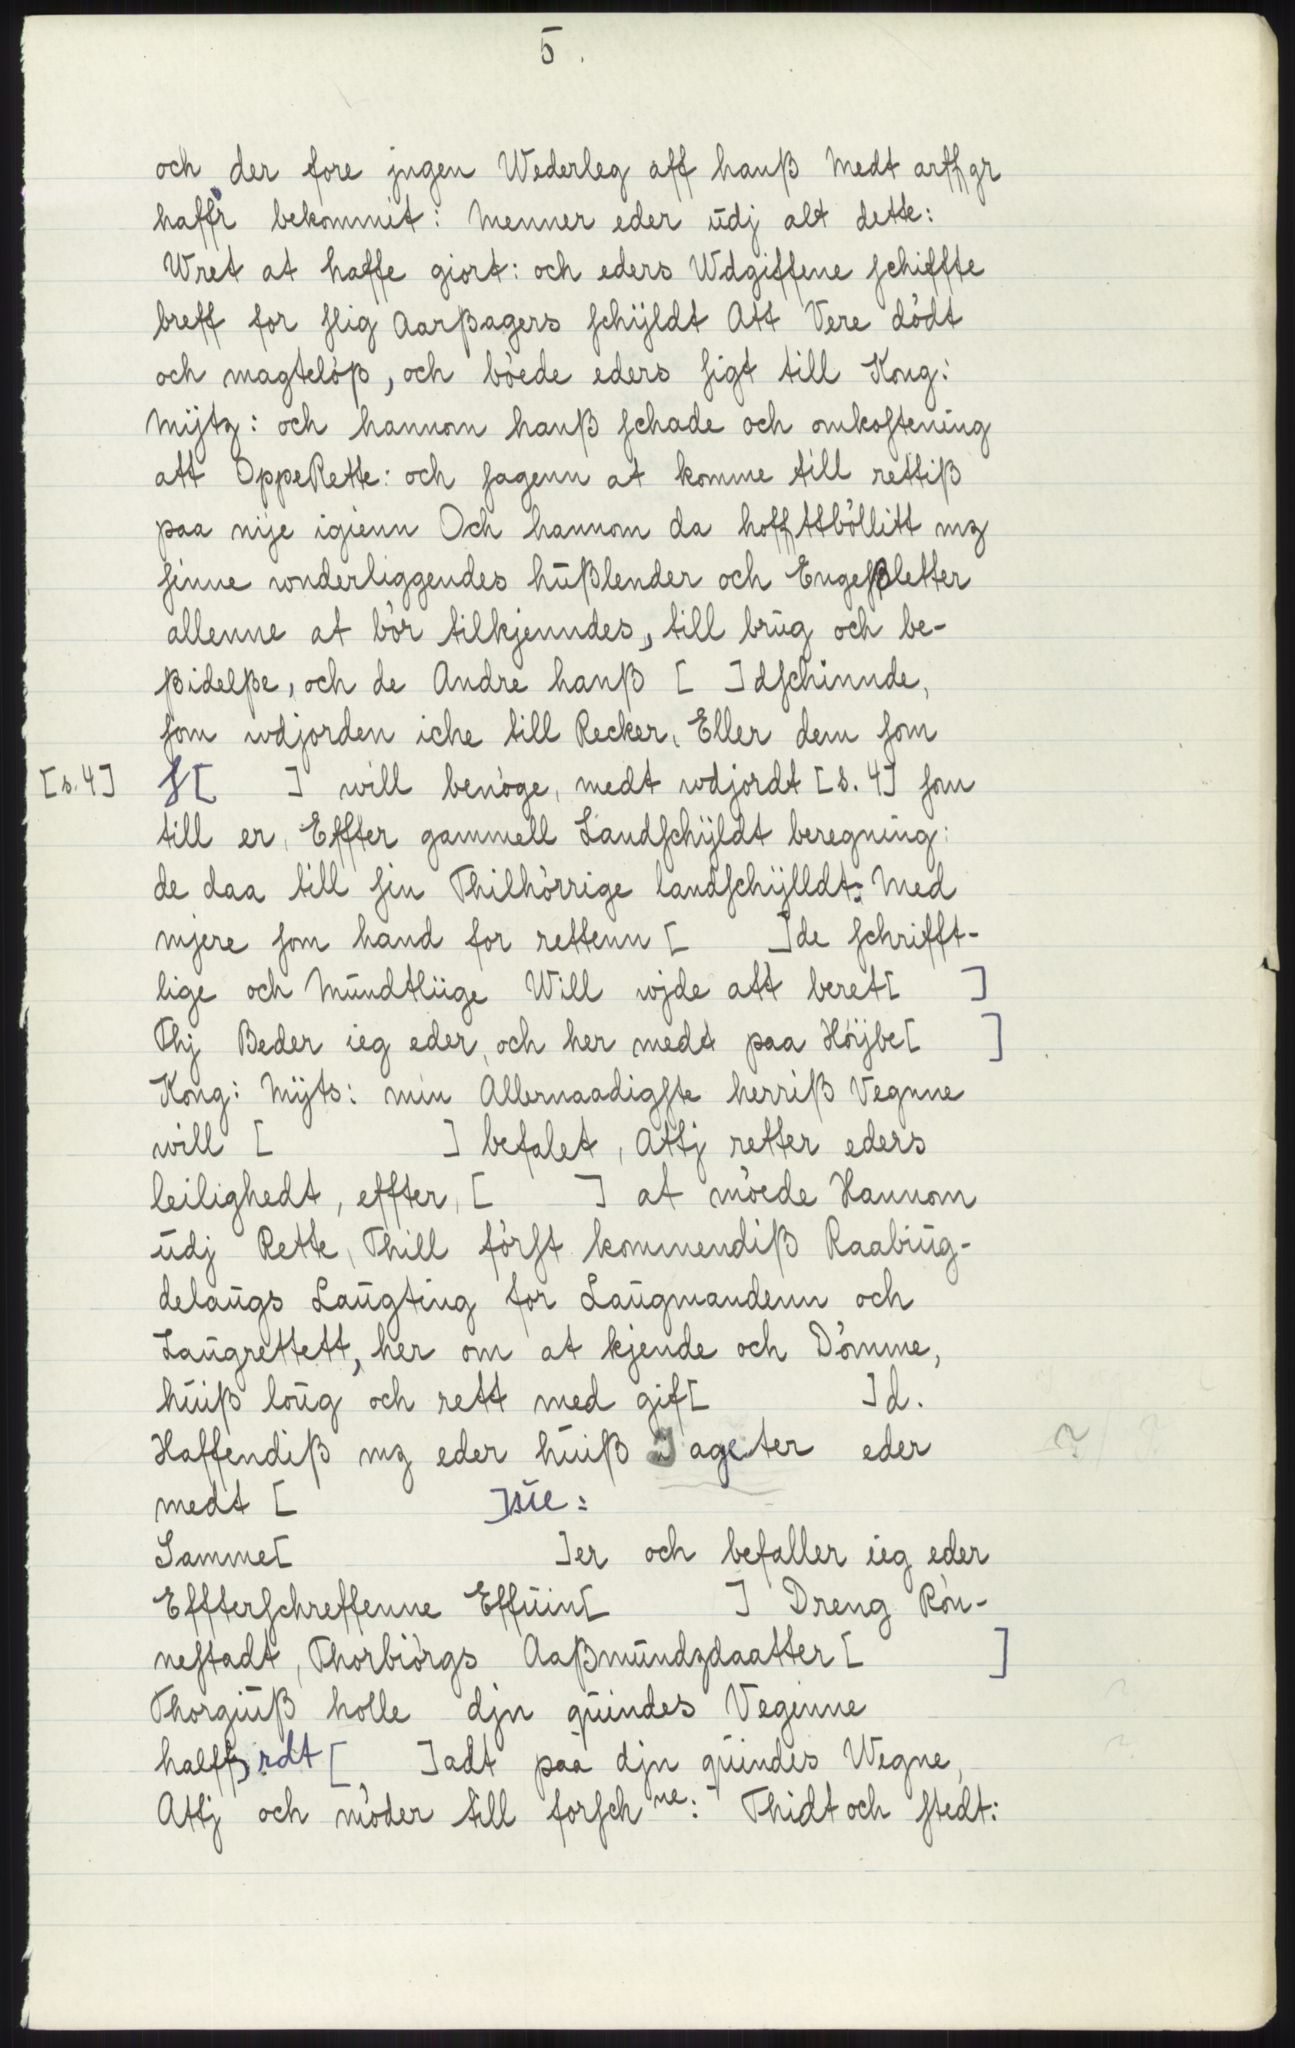 5.
och der fore jngen Wederleg aff hanß Medt arffgr
haffr bekommit: Menner eder udj alt dette:
Wret at haffe giort: och eders Wdgiffene schiffte
breff for slig Aarßagers schÿldt Att Vere dödt
och magteløß, och böede eders sigt till Kong:
Mÿtz: och hannom hanß schade och omkostening
att OppeRette: och sagenn at komme till rettiß
paa nije igienn Och hannom da hoffttböllitt mz
sinne wnderliggendes hußlender och Engeßletter
allenne at bör tilkjenndes, till brug och be-
ßidelße, och de Andre hanß [ ]dschinnde,
som wdjorden iche till Recker, Eller dem som
[s.4] s[ ] will benöge, medt wdjordt [s. 4] som
till er, Effter gammell Landschÿldt beregning:
de daa till sin Thilhörrige landschÿlldt: Med
mjere som hand for rettenn [ ]de schrifft-
lige och Mundtliige Will wjde att beret[ ]
Thj Beder ieg eder, och her medt paa Höÿbe[ ]
Kong: Mÿts: min Allernaadigste herriß Vegnne
will [ ] befalet, Attj retter eders
leilighedt, effter, [ ] at möede Hannom
udj Rette, Thill först kommendiß Raabiug-
delaugs Laugting for Laugmandenn och
Laugrettett, her om at kjende och Dömme,
huiß loug och rett med gif[ ]d.
Haffendiß mz eder huiß ]ageter eder
medt [ ]sie:
Samme[ ]er och befaller ieg eder
Effterschreffenne Effuin[ ] Dreng Rön-
nestadt, Thorbiörgs Aaßmundzdaatter [ ]
Thorgiuß holle djn quindes Veginne
halff rdt [ ]adt paa djn quindes Wegne,
Attj och möder till forschne: Thidt och stedt: